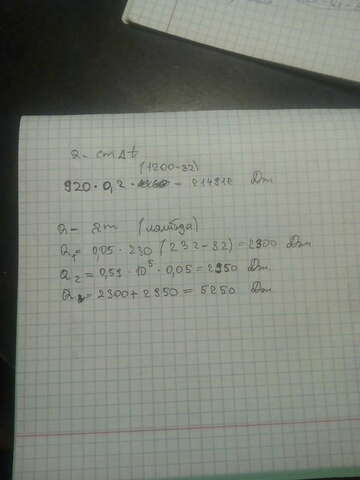 Q - cmΔt
(1200-32)
920 · 0,2 · - 214912 Дж
Q - λm (лямбда)
Q₁ = 0,05 · 230 (232-32) = 2300 Дж
Q₂ = 0,59 · 10⁵ · 0,05 = 2950 Дж
Q = 2300 + 2950 = 5250 Дж